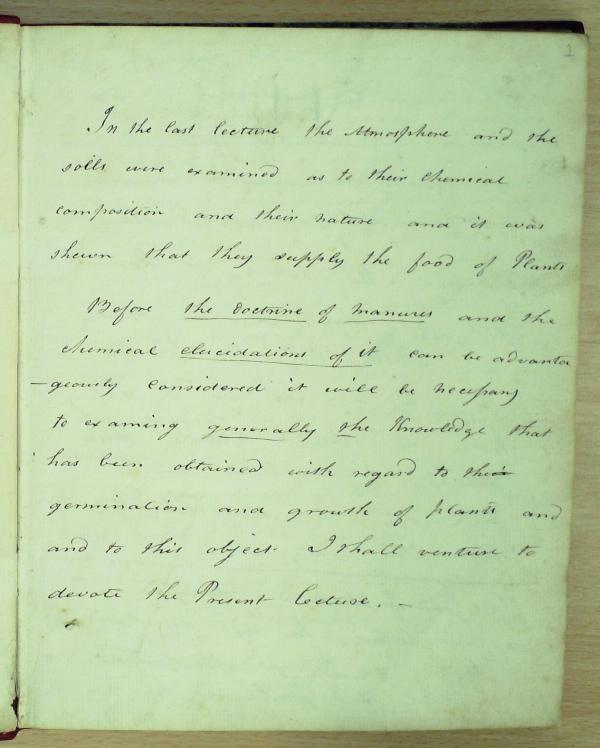 1
In the last lecture the Atmosphere and the
soils were examined as to their chemical
composition and their nature and it was
shewn that they supply the food of Plants
Before the doctrine of manures and the
chemical elucidations of it can be advanta
-geously considered it will be necessary
to examing generally the Knowledge that
has been obtained with regard to the
germination and growth of plants and
and to this object. I shall venture to
devote the Present lecture. -